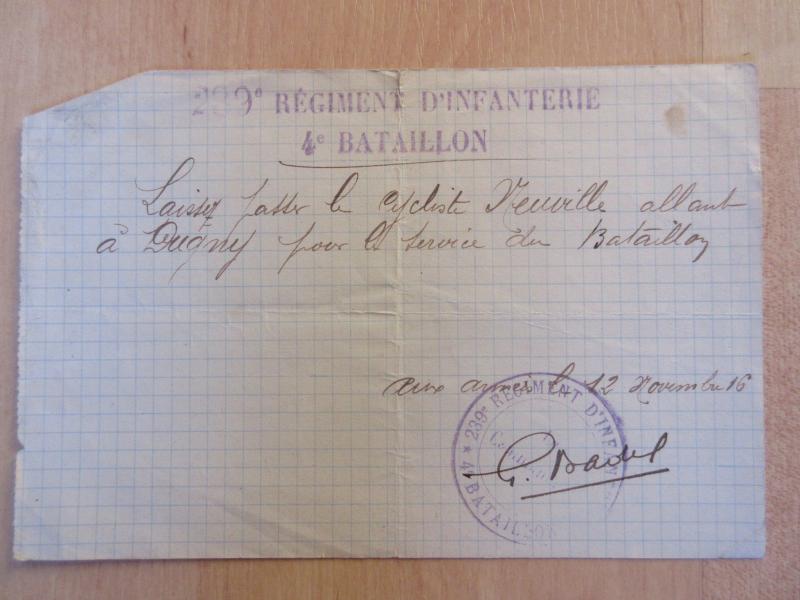 239e RÉGIMENT D'INFANTERIE
4e BATAILLON
Laissez passer le cycliste Neuville allant
à Dugny pour le service du Bataillon
aux armées le 12 Novembre 16
4e BATAILLON * 239e RÉGIMENT D'INFANTERIE
G. Badel